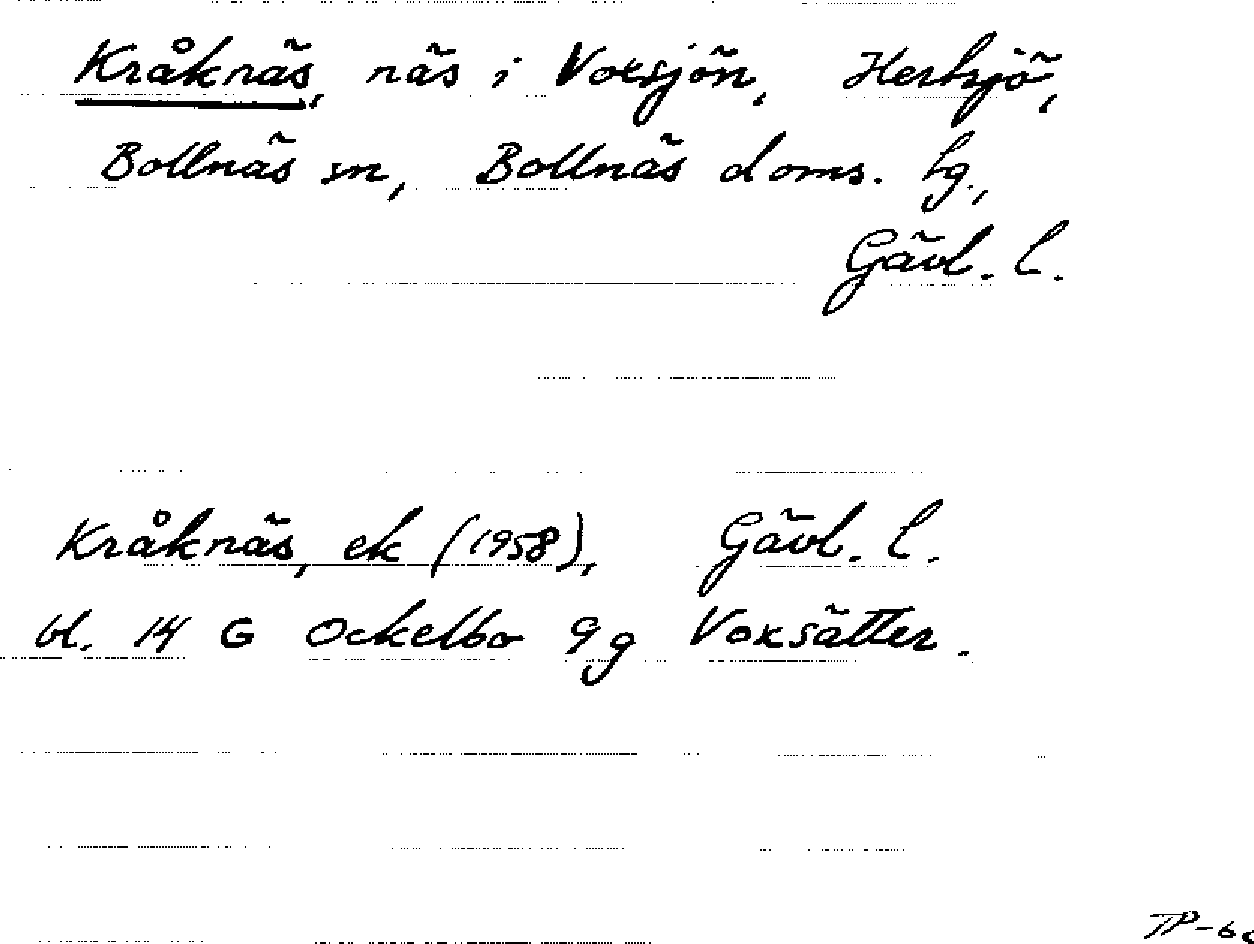 Kråknäs, näs i Voxsjön, Herlsjö,
Bollnäs sn, Bollnäs doms. hg.,
Gävl. l.
Kråknäs, ek (1958), Gävl. l.
bl. 14 G Ockelbo 9g Voxsätter.